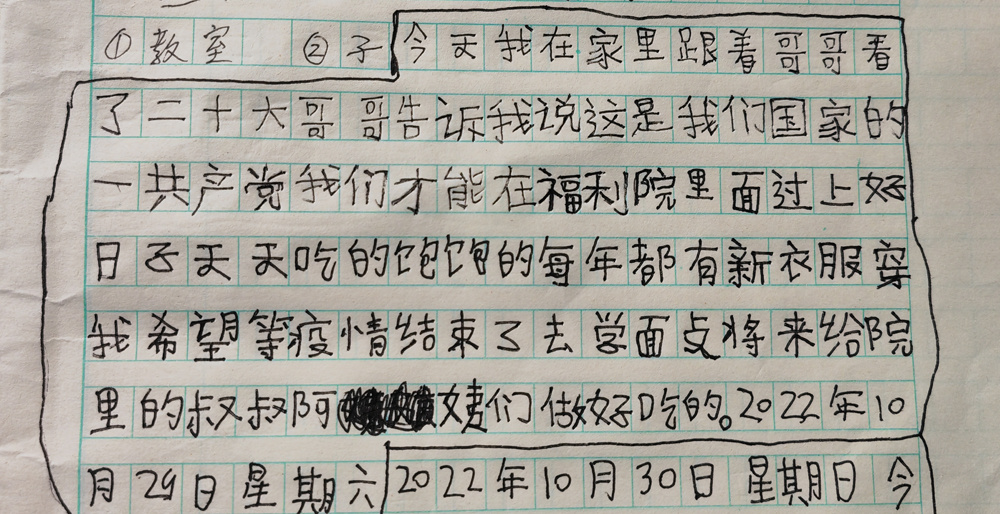 ①教室 ②子今天我在家里跟着哥哥看
了二十大哥哥告诉我说这是我们国家的
一共产党我们才能在福利院里面过上好
日子天天吃的饱饱的每年都有新衣服穿
我希望等疫情结束了去学面点将来给院
里的叔叔阿姨们做好吃的。2022年10
月29日星期六2022年10月30日星期日今